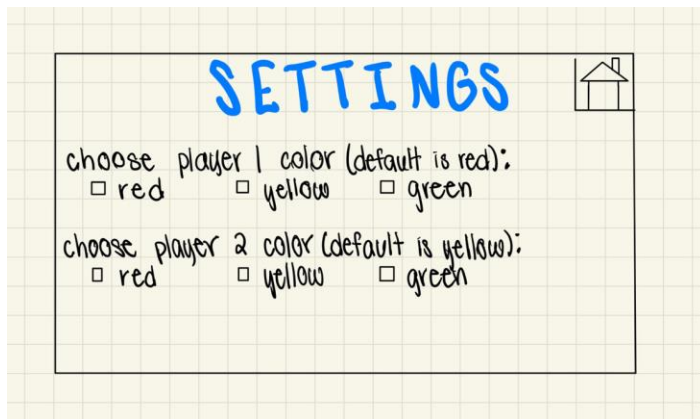 SETTINGS
choose player 1 color (default is red):
red yellow green
choose player 2 color (default is yellow):
red yellow green